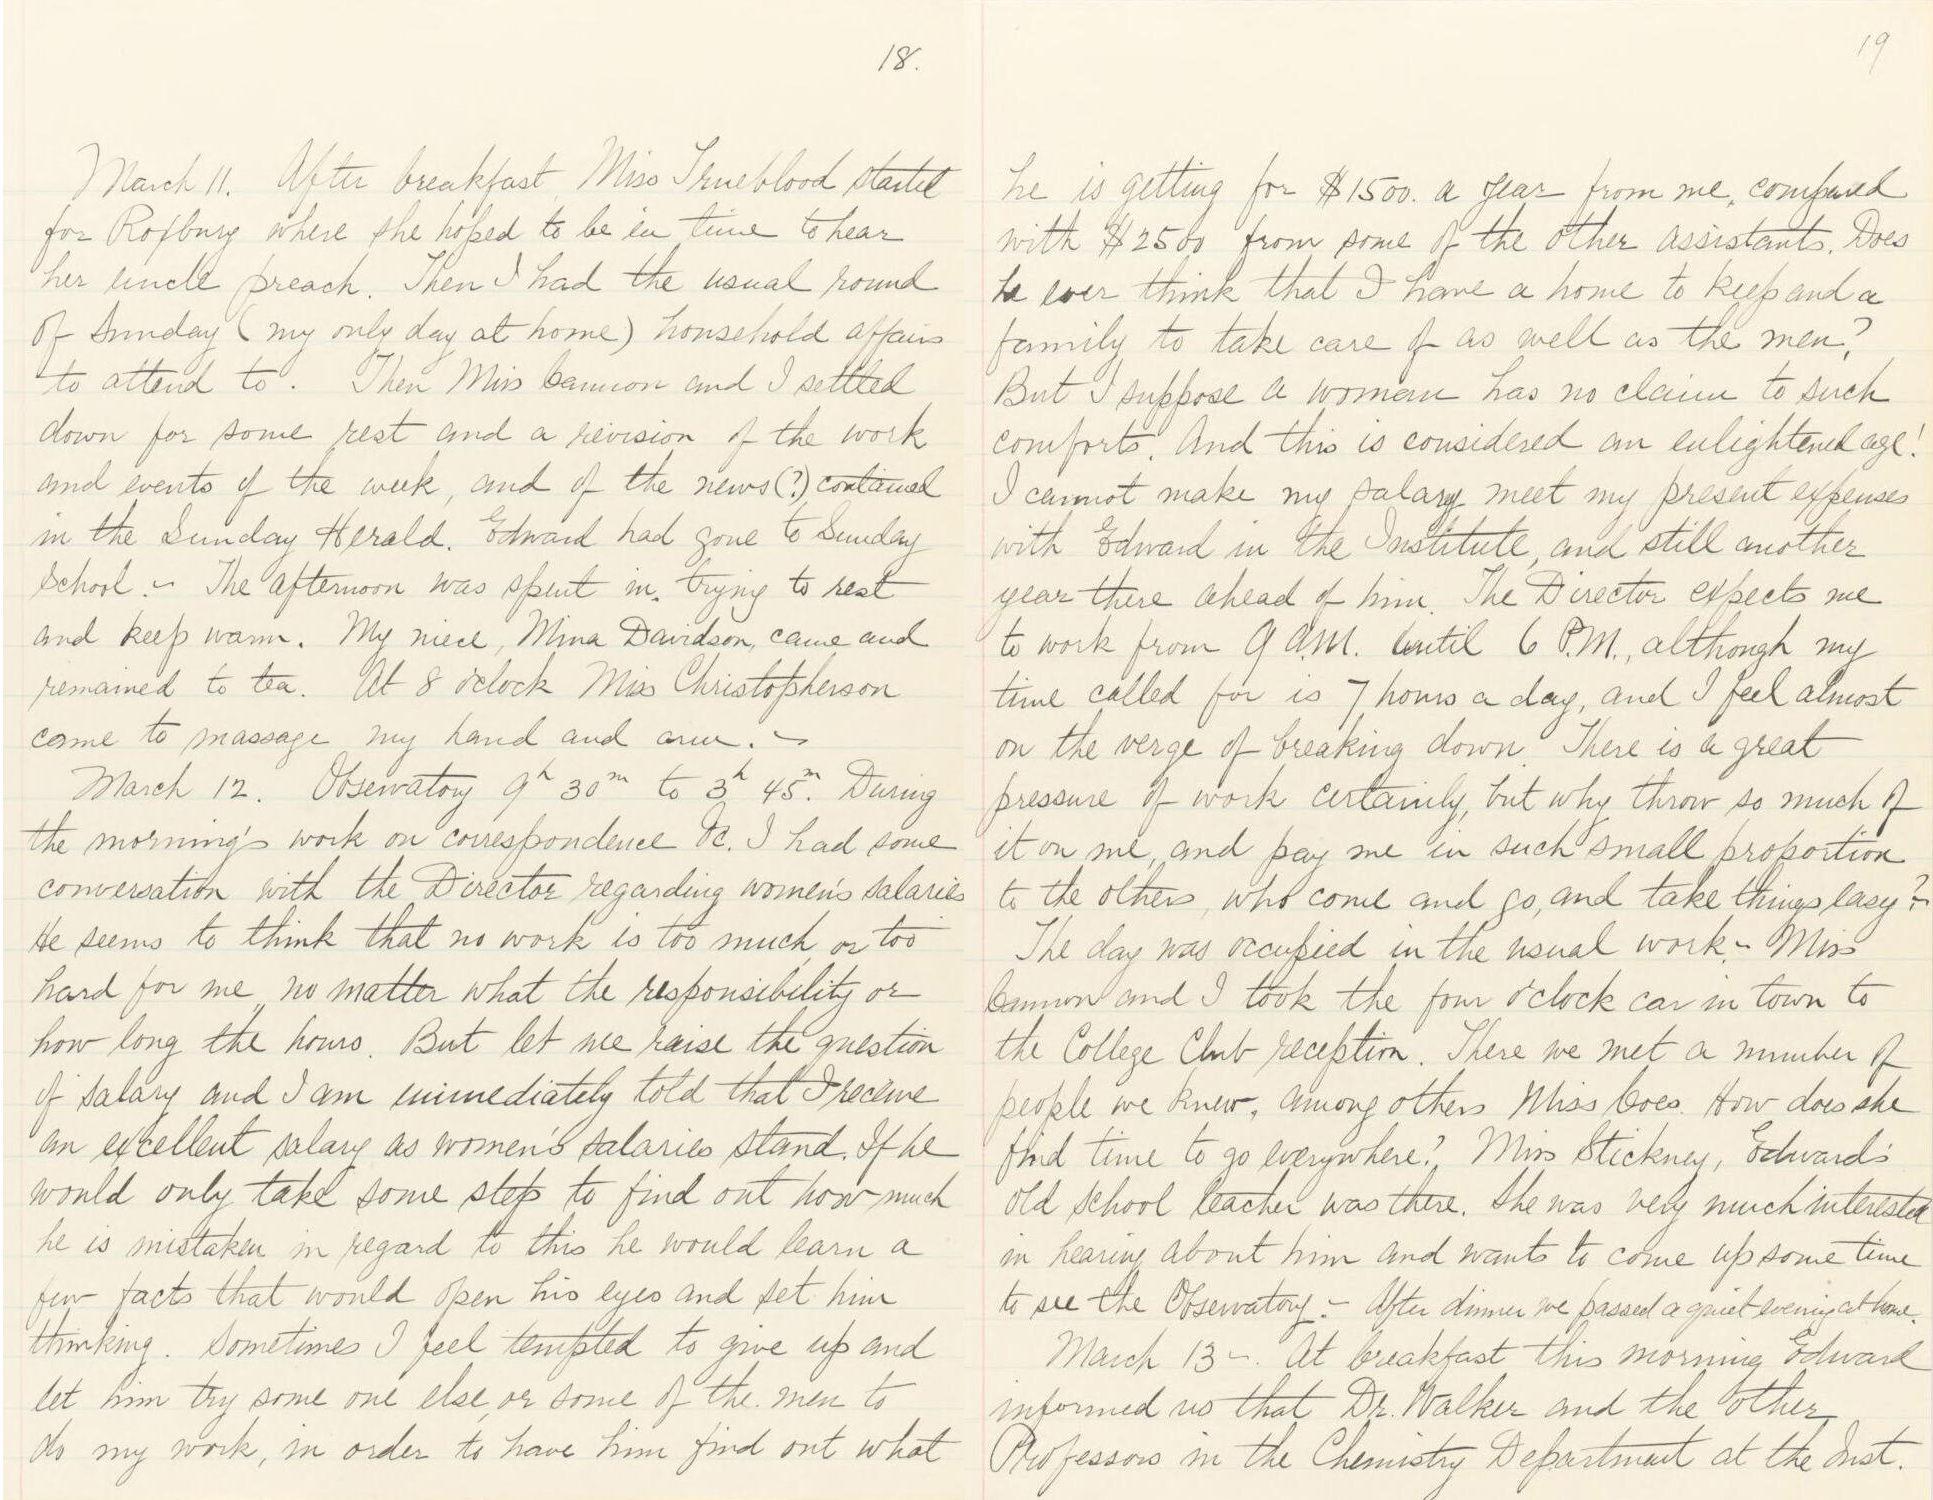 18.
March 11. After breakfast Miss Trueblood started
for Roxbury where she hoped to be in time to hear
her uncle preach. Then I had the usual round
of Sunday (my only day at home) household affairs
to attend to. Then Miss Cannon and I settled
down for some rest and a revision of the work
and events of the week, and of the news(?) contained
in the Sunday Herald. Edward had gone to Sunday
School. – The afternoon was spent in trying to rest
and keep warm. My niece, Mina Davidson, came and
remained to tea. At 8 o'clock Miss Christopherson
came to massage my hand and arm. –
March 12. Observatory 9h 30m to 3h 45m. During
the morning's work on correspondence &c. I had some
conversation with the Director regarding women's salaries
He seems to think that no work is too much or too
hard for me, no matter what the responsibility or
how long the hours. But let me raise the question
of salary and I am immediately told that I receive
an excellent salary as women's salaries stand. If he
would only take some step to find out how much
he is mistaken in regard to this he would learn a
few facts that would open his eyes and set him
thinking. Sometimes I feel tempted to give up and
let him try some one else, or some of the men to
do my work, in order to have him find out what
19
he is getting for $1500. a year from me, compared
with $2500 from some of the other assistants. Does
he ever think that I have a home to keep and a
family to take care of as well as the men?
But I suppose a woman has no claim to such
comforts. And this is considered an enlightened age!
I cannot make my salary meet my present expenses
with Edward in the Institute, and still another
year there ahead of him. The Director expects me
to work from 9 A.M. until 6 P.M., although my
time called for is 7 hours a day, and I feel almost
on the verge of breaking down. There is a great
pressure of work certainly, but why throw so much of
it on me, and pay me in such small proportion
to the others, who come and go, and take things easy? –
The day was occupied in the usual work – Miss
Cannon and I took the four o'clock car in town to
the College Club reception. There we met a number of
people we knew, among others Miss Coes. How does she
find time to go everywhere? Miss Stickney, Edward's
old school teacher was there. She was very much interested
in hearing about him and wants to come up some time
to see the Observatory. – After dinner we passed a quiet evening at home.
March 13 –. At breakfast this morning Edward
informed us that Dr. Walker and the other
Professors in the Chemistry Department at the Inst.